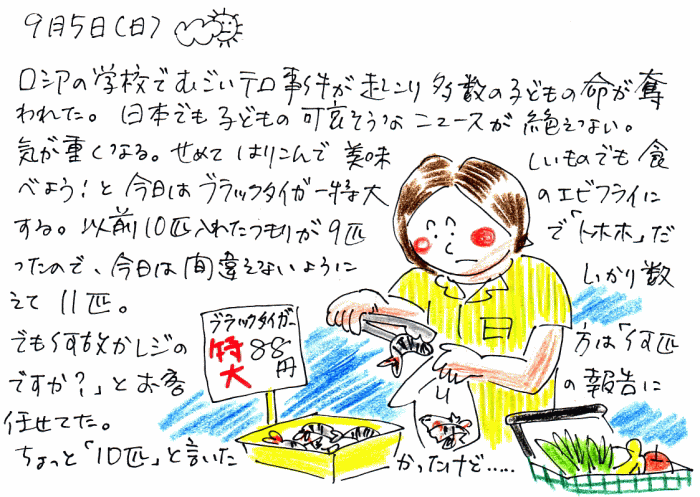 9月5日(日)
ロシアの学校でむごいテロ事件が起こり多数の子どもの命が奪
われた。日本でも子どもの可哀そうなニュースが絶えない。
気が重くなる。せめてはりこんで美味しいものでも食
べよう!と今日はブラックタイガー特大のエビフライに
する。以前10匹入れたつもりが9匹で「トホホ」だ
ったので、今日は間違えないようにしっかり数
えて11匹。
でも何故かレジの方は「何匹
ですか?」とお客の報告に
任せてた。
ちょっと「10匹」と言いたかったけど.....
ブラックタイガー
特大
88円